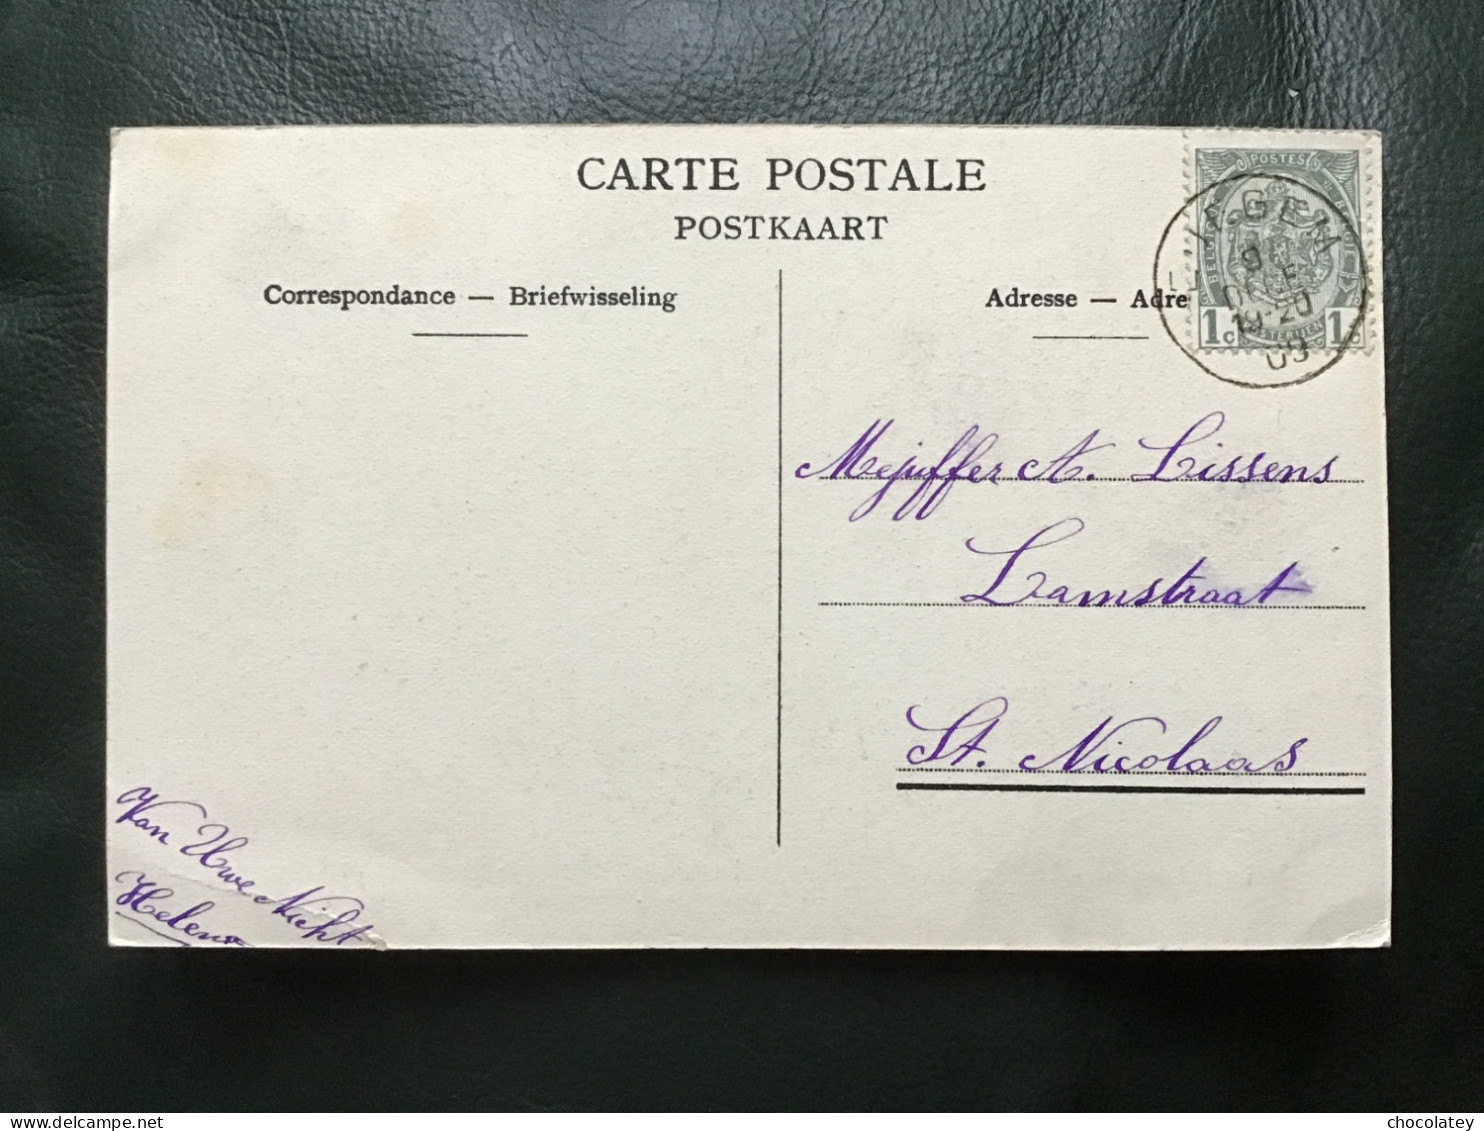 CARTE POSTALE
POSTKAART
Correspondance — Briefwisseling
Adresse — Adre
POSTES
BELGIQUE
1c 1c
9
DECE
19-20
09
Mejuffer A. Lissens
Lamstraat
St. Nicolaas
Van Uwe Nicht
Helena
chocolatey